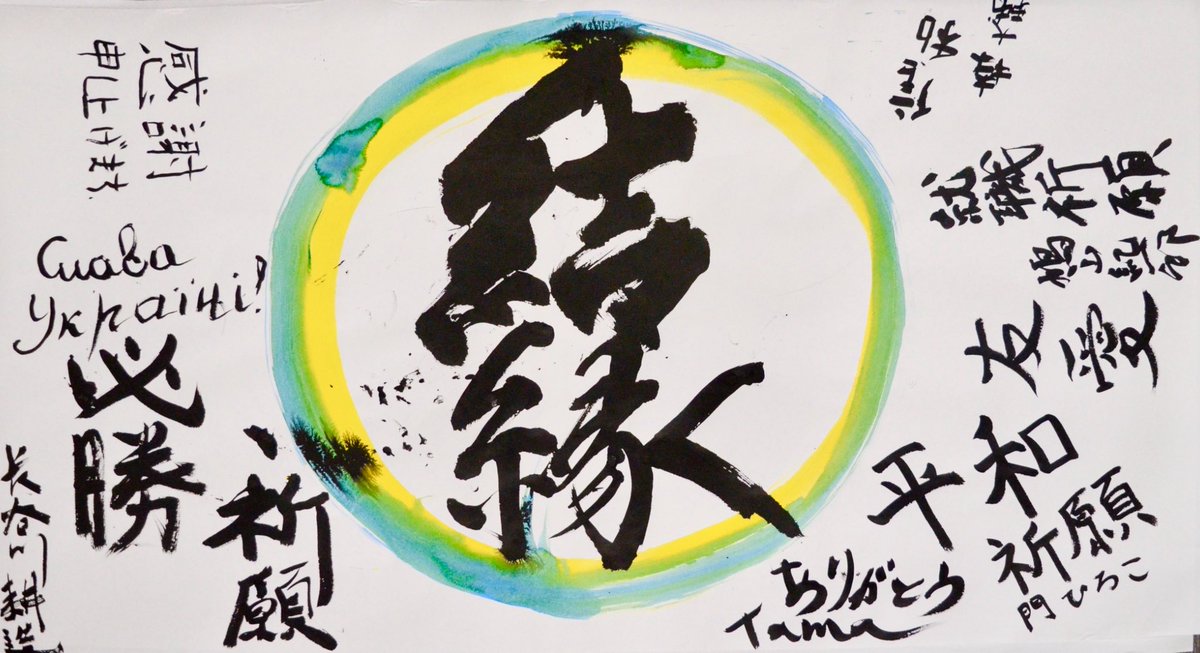 感謝
申し上げます
Слава
Україні!
必勝
祈願
長谷川耕造
結
縁
就職祈願
友愛
平和
祈願
門ひろこ
ありがとう
Tama